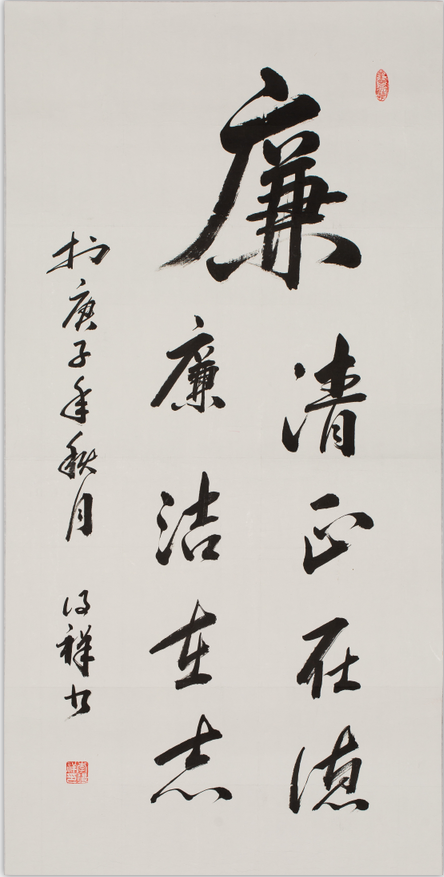 廉
清正在德
廉洁在志
于庚子年秋月 得祥书